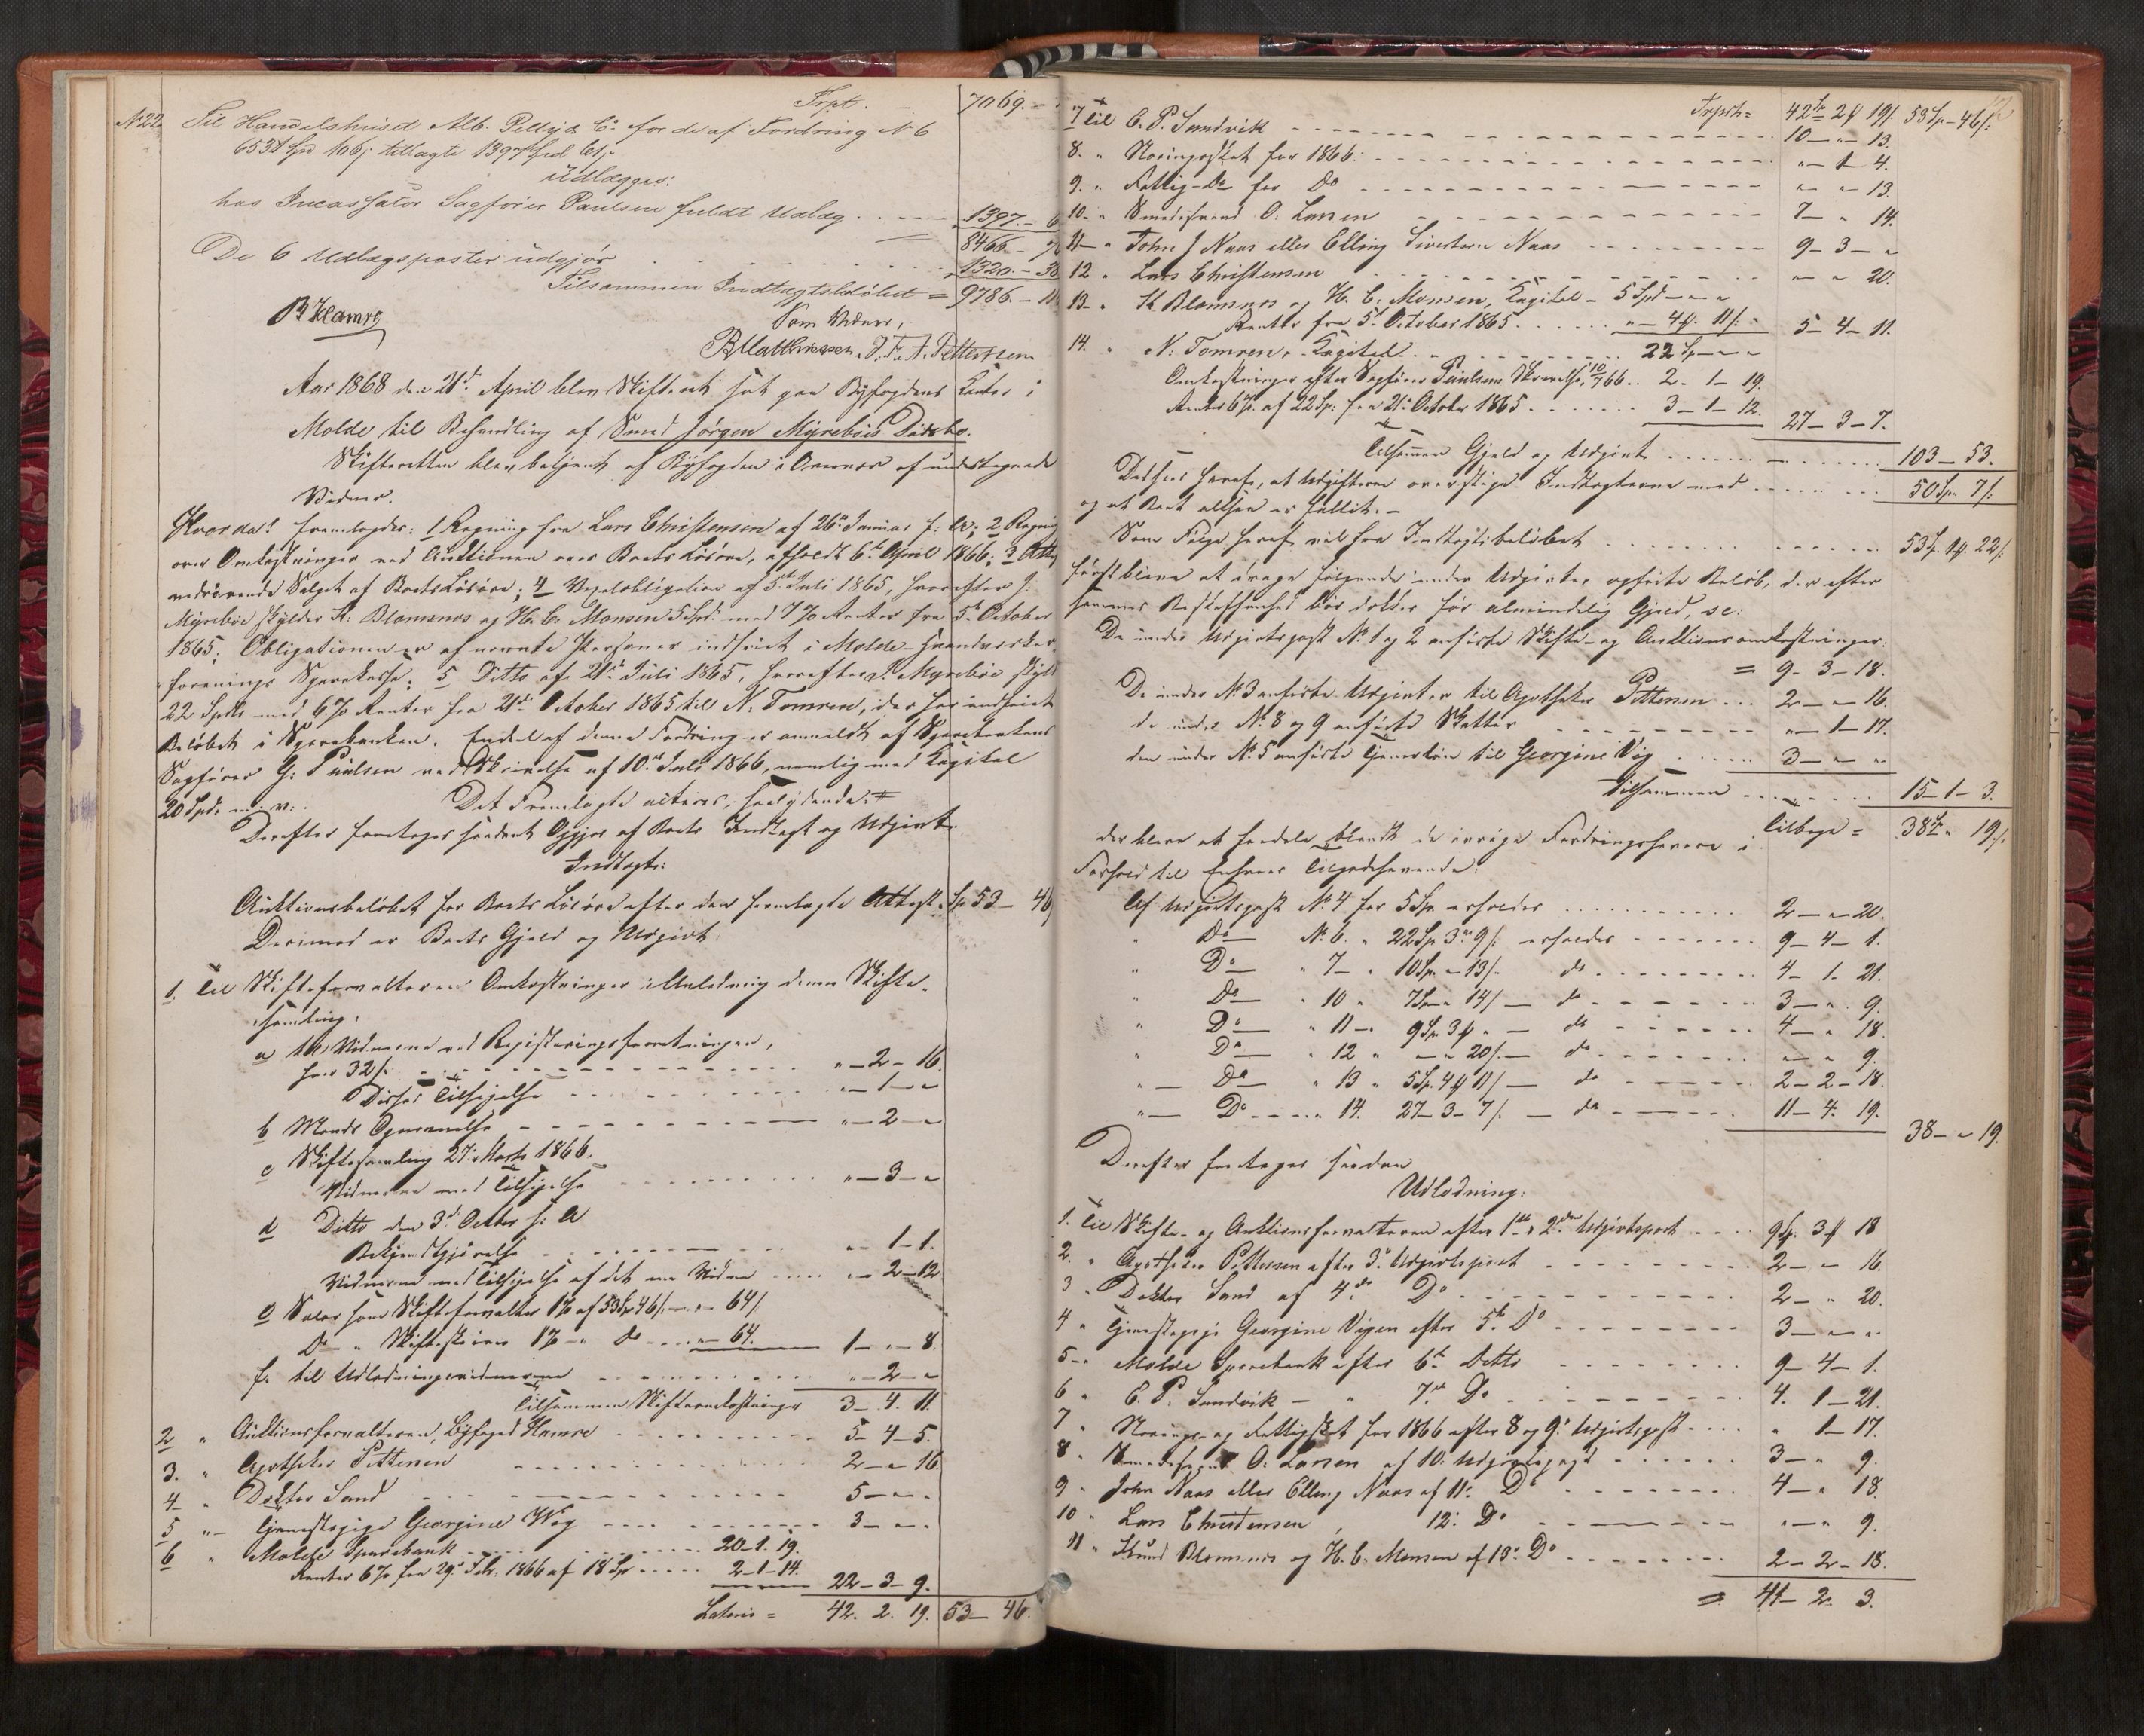 Trpt. — 7069. —
No 22 Til Handelshuset Alb. Pelly & Co. for de af Fordring No 6
6531 Spd 106 s tillagte 1397 Spd 61 s
Udlægges:
has Incassator Sagfører Paulsen fuldt Udlæg . . — 1397. — 6
8466. — 7
De 6 Udlægsposter udgjør . . . 1320. — 3
Tilsammen Indtægtsbeløbet = 9786. — 11
B Hamre
Som Vidner,
B Matthiessen. J. F. A. Pettersen
Aar 1868 den 21de April blev Skifteret sat paa Byfogdens Kontor i
Molde til Behandling af Smed Jørgen Myrebøes Dødsbo.
Skifteretten blev betjent af Byfogden i Overvær af undertegnede
Vidner.
Hvorda! fremlagdes: 1 Regning fra Lars Christensen af 26de Januar f: A; 2 Regning
over Omkostninger ved Auctionen over Boets Løsøre, afholdt 6te April 1866; 3 Attest
vedrørende Salget af Boets Løsøre; 4 Vexelobligation af 5te Juli 1865, hvorefter J:
Myrebøe skylder K: Blomsnes og H. C. Monsen 5 Spd: med 7 % Renter fra 5te October
1865; Obligationen er af nævnte Personer indfriet i Molde Haandværker-
forenings Sparekasse; 5 Ditto af 21de Juli 1865, hvorefter J. Myrebøe skyldt
22 Spdlr med 6 % Renter fra 21de October 1865 til N. Tomren, der har indfriet
Beløbet i Sparebanken. Endel af denne Fordring er anmeldt af Sparebankens
Sagfører G: Paulsen ved Skrivelse af 10de Juli 1866, nemlig med Kapital
20 Spd: m: v: . Det Fremlagte acteres, saalydende: #
Derefter foretoges saadant Opgjør af Boets Indtægt og Udgivt.
Indtægt:
Auktionsbeløbet for Boets Løsøre efter den fremlagte Attest. Sp 53 — 46
Derimod er Boets Gjæld og Udgivt
1. Til Skifteforvalteren Omkostninger i Anledning denne Skifte-
samling:
a til Vidnerne ved Registreringsforretningen,
hver 32 s. — — — " — 2 — 16.
Disses Tilsigelse — — — " — 1 — "
b Mænds Opnævnelse — — — " — 2 — "
c Skiftesamling 27de Marts 1866.
Vidnerne med Tilsigelse — — — " — 3 — "
d Ditto den 3de Octbr s: A
Bekjendtgjørelse — — — " — 1 — 1.
Vidnerne med Tilsigelse af det ene Vidne — — " — 2 — 12
e Salær som Skifteforvalter 1% af 53 Sp 46 s — " — 64 s
Do " Skifteskriver 1% — " do — " — 64. 1 — " — 8.
f. til Udlodningsvidnerne — — — " — 2 — "
Tilsammen Skifteomkostninger 3 — 4. 11.
2 " Auktionsforvalteren, Byfoged Hamre . . . 5 — 4 — 5.
3. " Apotheker Pettersen . . . 2 — " — 16.
4 " Doktor Sand — — — 5 — " — "
5 " — Tjenestepige Georgine Wøg — — — 3 — " — "
6 " Molde Sparebank — — — 20 — 1. 19.
Renter 6% fra 29de Febr. 1866 af 18 Sp — — 2 — 1 — 14. 22 — 3 — 9.
Lateris = 42. 2. 19. 53 — 46.
Trpt = 42 Sp 2 ort 19 s 53 Sp — 46 s
7 Til C. P. Sandvik — — — 10 — " — 13.
8. " Næringsskat for 1866 — — — " — 1 — 4.
9. " Fattig-Do for Do — — — " — " — 13.
10. " Smedesvend O. Larsen — — — 7 — " 14.
11 — " John J Naas eller Elling Sivertsen Naas — — — 9 — 3 — "
12 " Lars Christensen — — — " — " 20.
13 — " K Blomsnes og H. C. Monsen, Kapital — 5 Spd — " — "
Renter fra 5te October 1865 . . . " — 4 ort. 11 s. 5 — 4 — 11.
14. " N. Tomren, Kapital — — — 22 Sp — " — "
Omkostninger efter Sagfører Paulsens Skrivelse, 10/7 66 . . 2 — 1 — 19.
Renter 6% af 22 Sp: fra 21de October 1865 . . . 3 — 1 — 12. 27 — 3 — 7.
Tilsammen Gjæld og Udgivt . . . 103 — 53.
Det sees heraf, at Udgifterne overstiger Indtægterne med . . . 50 Sp 7 s.
og at Boet altsaa er fallit. —
Som Følge heraf vil fra Indtægtsbeløbet . . . 53 Sp. 1 ort. 22 s.
først blive at drage følgende under Udgivter opførte Beløb, der efter
sammes Beskaffenhed bør dækkes før almindelig Gjæld, se:
De under Udgivtspost No 1 og 2 anførte Skifte- og Auktionsomkostninger:
= 9 — 3 — 18.
De under No 3 anførte Udgivter til Apotheker Pettersen . . . 2 — " — 16.
de under No 8 og 9 anførte Skatter — — — " — 1 — 17.
den under No 5 anførte Tjenerløn til Georgine Wøg . . . 3 — " — "
Tilsammen . . . 15 — 1 — 3.
Tilbage = 38 Sp " 19 s.
der bliver at fordele blandt de øvrige Fordringshavere i
Forhold til Enhvers Tilgodehavende:
Af Udgivtspost No 4 for 5 Sp erholdes . . . 2 — " — 20.
" Do No 6. " 22 Sp 3 ort 9 s. erholdes — — — 9 — 4 — 1.
" Do " 7 — " 10 Sp. — 13 s. do — — — 4 — 1 — 21.
" Do " 10 " 7 Sp — 14 s — do — — — 3 — " — 9.
" Do " 11 — " 9 Sp 3 ort " — do — — — 4 — " 18.
" Do " 12 " — " 20 s. — do — — — " — " 9.
" — Do " 13 " 5 Sp. 4 ort 11 s — do — — — 2 — 2 — 18.
" — Do — — " 14. 27 — 3 — 7 s. — do — — — 11 — 4. 19.
38 — " 19.
Derefter foretoges saadan
Udlodning:
1. Til Skifte- og Auktionsforvalteren efter 1ste & 2den Udgivtspost — — 9 Sp. 3 ort 18
2. " Apotheker Pettersen efter 3de Udgivtspost — — — 2 — " — 16.
3 " Doktor Sand af 4de Do — — — 2 — " 20.
4 " Tjenestepige Georgine Vøgen efter 5te Do — — — 3 — " — "
5 — " Molde Sparebank efter 6te Ditto — — — 9 — 4 — 1.
6 " C. P. Sandvik — " 7de Do — — — 4. 1 — 21.
7 " Nærings- og Fattigskat for 1866 efter 8 og 9de Udgivtspost — — " 1 — 17.
8 " Smedesvend O. Larsen af 10. Udgivtspost — — — 3 — " 9.
9 " John Naas eller Elling Naas af 11te Do — — — 4 — " 18.
10 " Lars Christensen, 12te Do — — — " — " 9.
11 " Knud Blomsnes og H. C. Monsen af 13de Do — — — 2 — 2 — 18.
= 41 — 2. 3.